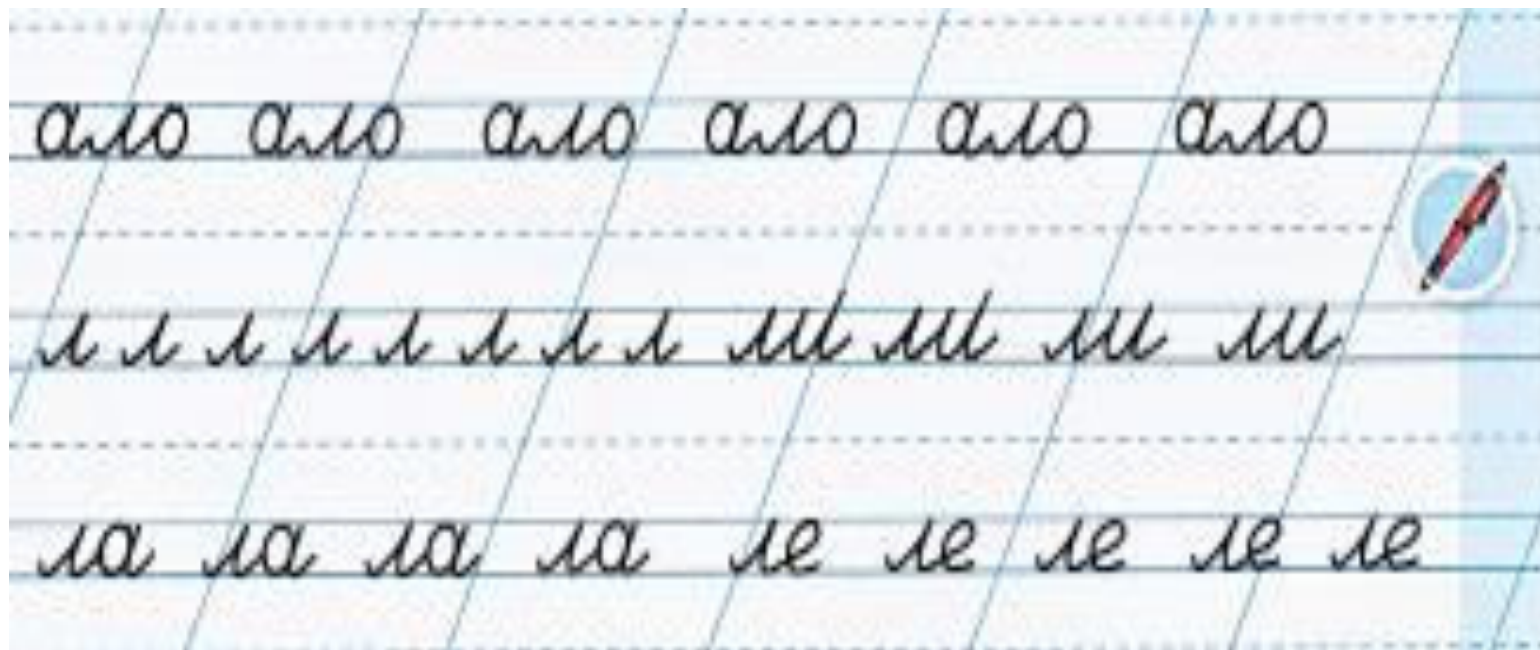 ало ало ало ало ало ало
л л л л л л л л ли ли ли ли
ла ла ла ла ле ле ле ле ле